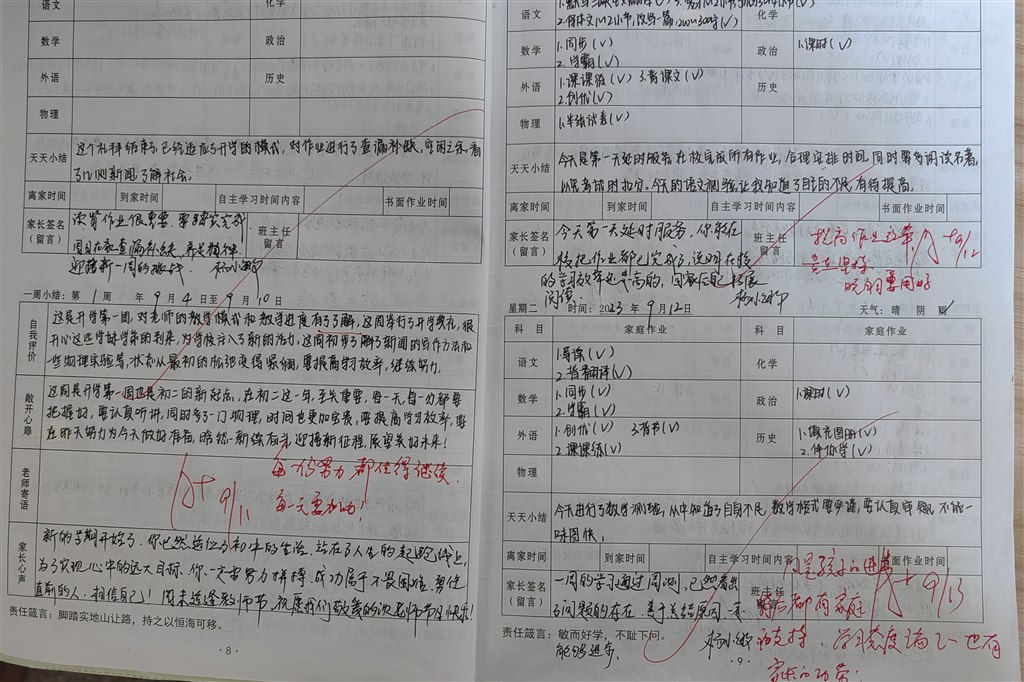 数学 政治
外语 历史
物理
天天小结 这个礼拜结束了,已经适应了开学的模式,对作业进行了查漏补缺,空闲之余看
了以则新闻,了解社会。
离家时间 到家时间 自主学习时间内容 书面作业时间
家长签名(留言) 班主任留言
读写作业很重要,要踏实完成
周日在家查漏补缺,养足精神
迎接新一周的挑战
一周小结:第 1 周 年 9 月 4 日至 9 月 10 日
自我评价
这是开学第一周,对老师的教学模式和教学进度有了了解,这周举行了开学典礼,很
开心这些学妹学弟的到来,为学校注入了新的活力。这周初步了解了新闻的写作方法和
一些物理实验等,状态从最初的松弛变得紧绷,要提高学习效率,继续努力。
敞开心扉
这周是开学第一周也是初二的新起点,在初二这一年,至关重要,每一天,每一分都要
把握好,要认真听讲,同时多了一门物理,时间也更加宝贵,要提高学习效率,要
在昨天努力为今天做好准备,
迎接新征程,展望美好未来!
老师寄语
每一份努力都值得继续.
每一天要加油!
A+ 9/11
家长心声
新的学期开始了,你已然适应了初中的生活,站在了人生的起跑线上,
为了实现心中的远大目标,你一定要努力拼搏,成功属于不畏困难,勇往
直前的人,相信自己!周末适逢教师节,祝愿我们敬爱的沈老师节日快乐!
责任箴言:脚踏实地山让路,持之以恒海可移。
·8·
语文 化学
数学 1.同步(√) 政治 1.课时(√)
2.学霸(√)
外语 1.课课练(√) 3.背课文(√) 历史
2.创优(√)
物理 1.半张试卷(√)
天天小结 今天是第一天延时服务,在校完成所有作业,合理安排时间,同时要多阅读名著,
以免考试时扣分,今天的语文测验让我知道了自己的不足,有待提高。
离家时间 到家时间 自主学习时间内容 书面作业时间
家长签名(留言) 班主任留言
今天第一天延时服务,你能在
校把作业都已完成了,说明在校
的学习效率还是高的,回家后可拓展
阅读.
提高作业效率 A+ 9/12
贵在坚持
晚自习要用好
星期二 时间:2023 年 9 月 12 日 天气:晴 阴 雨
科 目 家庭作业 科 目 家庭作业
语文 1.导读(√) 化学
2.指南翻译(√)
数学 1.同步(√) 政治 1.课时(√)
2.学霸(√)
外语 1.创优(√) 3.背书(√) 历史 1.填充图册(√)
2.课课练(√) 2.伴你学(√)
物理
天天小结 今天进行了数学测验,从中知道了自身不足,数学格式要严谨,要认真审题,不能一
味图快。
离家时间 到家时间 自主学习时间内容 书面作业时间
家长签名(留言) 班主任留言
一周的学习通过周测,已然看出
了问题的存在,善于总结原因,
能够进步.
每个孩子的进步 A+ 9/13
背后都有家庭
的支持,学习态度端正也有
家长的功劳!
责任箴言:敏而好学,不耻下问。
·9·